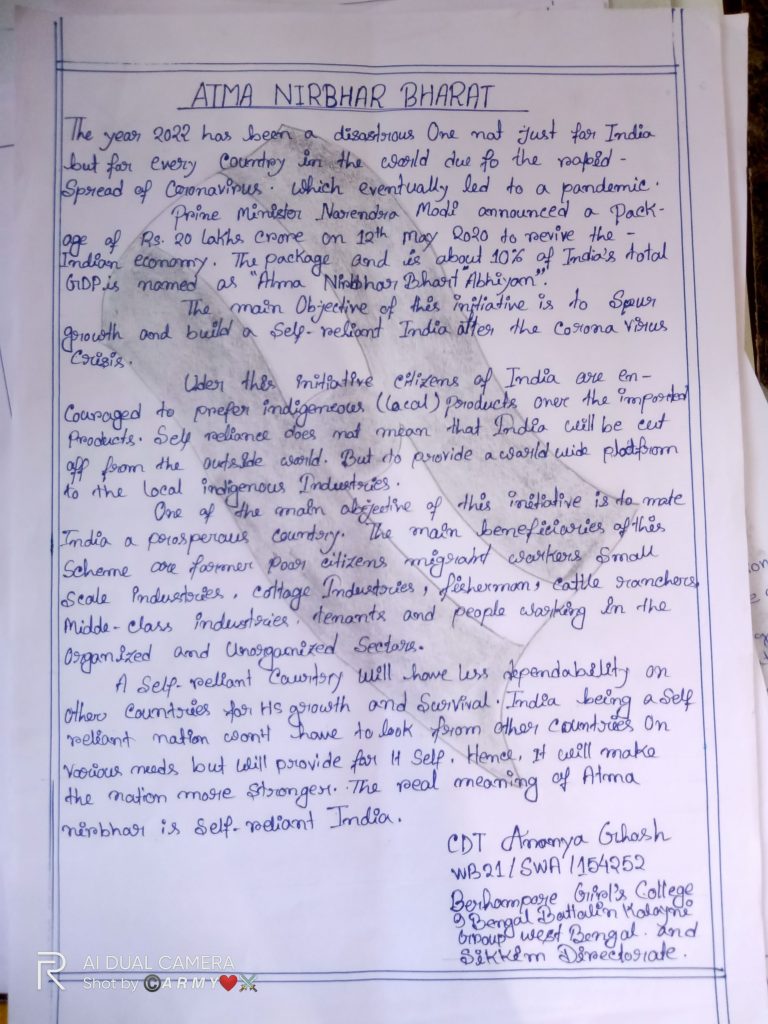 ATMA NIRBHAR BHARAT
The year 2022 has been a disastrous One not just for India
but for every Country in the world due to the rapid -
Spread of Coronavirus. which eventually led to a pandemic.
Prine Minister Narendra Modi announced a Pack-
age of Rs. 20 lakhs crore on 12th May 2020 to revive the -
Indian economy. The package and is about 10% of India's total
GDP.is named as "Atma Nirbhar Bhart Abhiyan".
The main Objective of this initiative is to Spur
growth and build a Self-reliant India after the Corona Virus
Crisis.
Uder this initiative citizens of India are en-
Couraged to prefer indigeneous (local) products over the imported
Products. Self reliance does not mean that India will be cut
off from the outside world. But to provide a world wide platfrom
to the local indigenous Industries.
One of the main objective of this initiative is to make
India a prosperous country. The main beneficiaries of this
Scheme are former poor citizens migrant workers Small
Scale industries, cottage Industries, fisherman, cattle ranchers,
Midde-class industries, tenants and people working In the
Organized and Unorganized Sectors.
A Self-reliant Country will have less dependability on
other Countries for Its growth and Survival. India being a Self
reliant nation won't have to look from other Countries On
Various needs but will provide for It Self. Hence, It will make
the nation more Stronger. The real meaning of Atma
nirbhar is Self-reliant India.
CDT Ananya Ghosh
WB21/SWA/154252
Berhampore Girl's College
9 Bengal Battalin Kalayni
Group west Bengal. and
Sikkim Directorate.
AI DUAL CAMERA
Shot by ©ARMY❤️⚔️